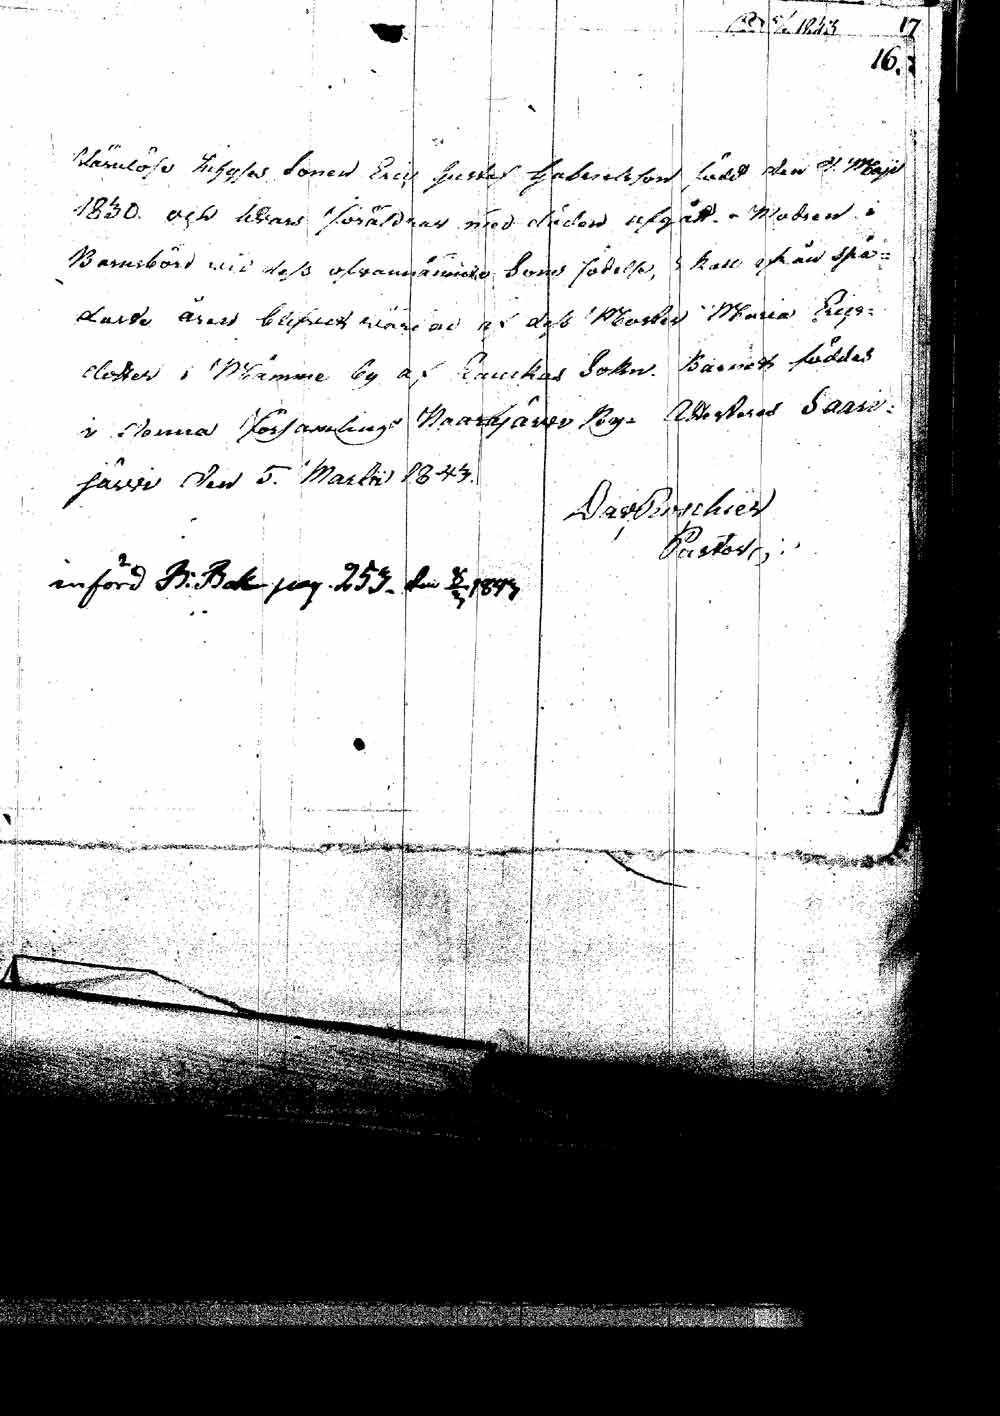 1843 17
16.
Wärnlöse Inhyses Sonen Eric Gustaf Gabrielsson, född den Maji
1830. och hvars föräldrar med döden afgått. - Modren i
Barnsbörd vid dess ofvannämnde Sons födelse, skall ifrån spä=
daste åren blifvit vårdad af dess Moster Maria Erics=
dotter i Mämme by af Laukas Sokn. Barnet föddes
i denna Församlings Naarajärvi By. Attesteras Saari=
järvi den 5. Martii 1843.
Dav. Roschier
Pastor
införd B. Bok pag. 253. den 8/3 1843